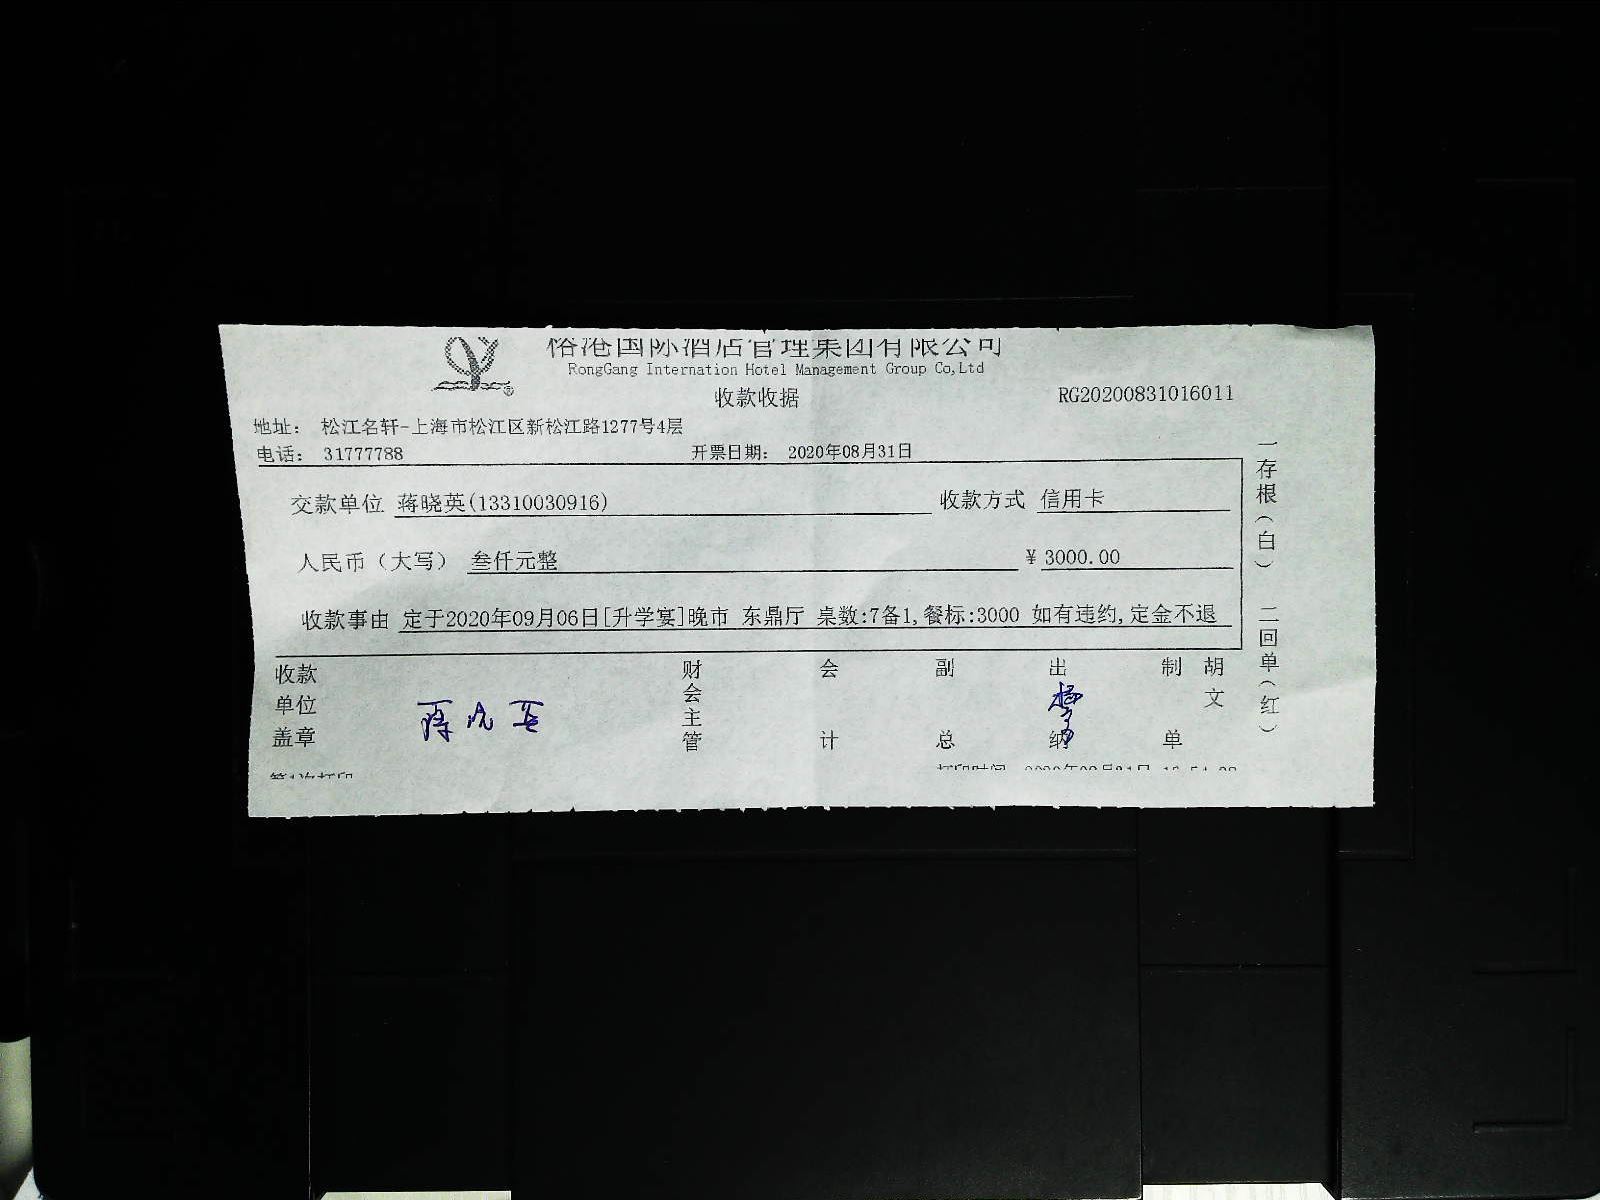 榕港国际酒店管理集团有限公司
RongGang Internation Hotel Management Group Co,Ltd
®
收款收据
RG20200831016011
地址： 松江名轩-上海市松江区新松江路1277号4层
电话： 31777788 开票日期： 2020年08月31日
交款单位 蒋晓英(13310030916) 收款方式 信用卡
人民币（大写） 叁仟元整 ¥ 3000.00
收款事由 定于2020年09月06日[升学宴]晚市 东鼎厅 桌数:7备1,餐标:3000 如有违约,定金不退
一存根（白） 二回单（红）
收款单位盖章
蒋晓英
财会主管
会计
副总
出纳
制单
胡文
第1次打印
打印时间 2020年08月31日